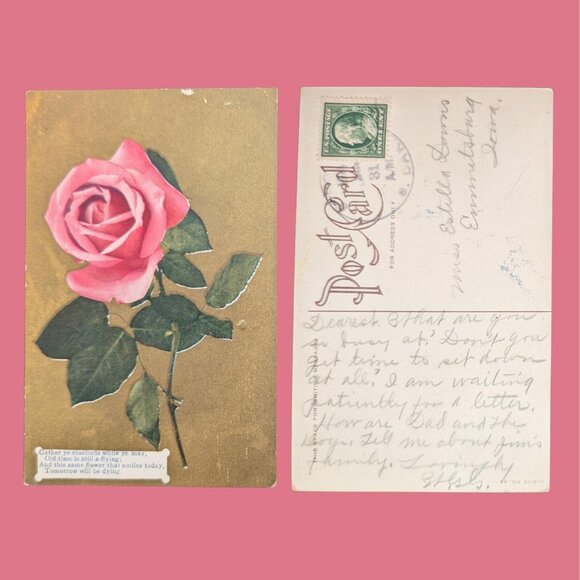 Gather ye rosebuds while ye may,
Old time is still a-flying;
And this same flower that smiles today,
Tomorrow will be dying.
U.S. POSTAGE
ONE CENT
31
A.M.
Post Card
FOR ADDRESS ONLY
Miss Estella Downs
Emmetsburg
Iowa.
THIS SPACE FOR WRITING MESSAGES
Dearest What are you
so busy at? Don't you
get time to set down
at all? I am waiting
patiently for a letter.
How are Dad and the
boys. Tell me about Jim's
family. Lovingly